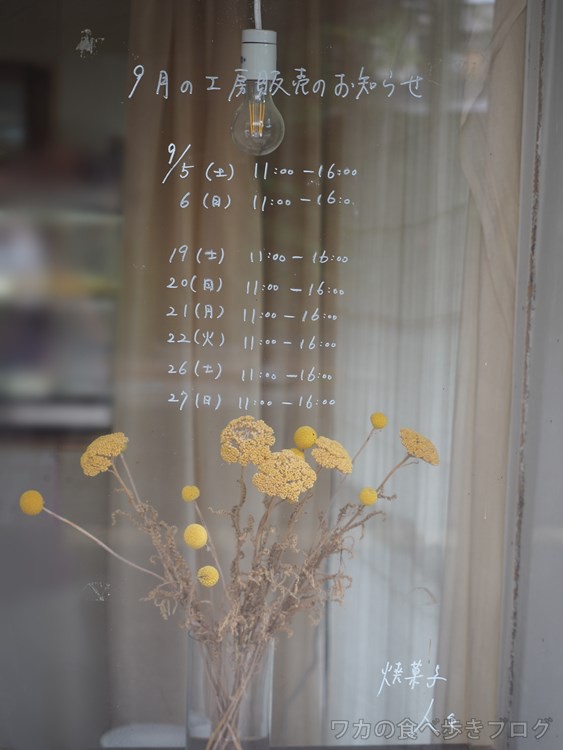 9月の工房販売のお知らせ
9/5(土) 11:00-16:00
6(日) 11:00-16:0
19(土) 11:00-16:00
20(日) 11:00-16:00
21(月) 11:00-16:00
22(火) 11:00-16:00
26(土) 11:00-16:00
27(日) 11:00-16:00
焼菓子
ワカの食べ歩きブログ